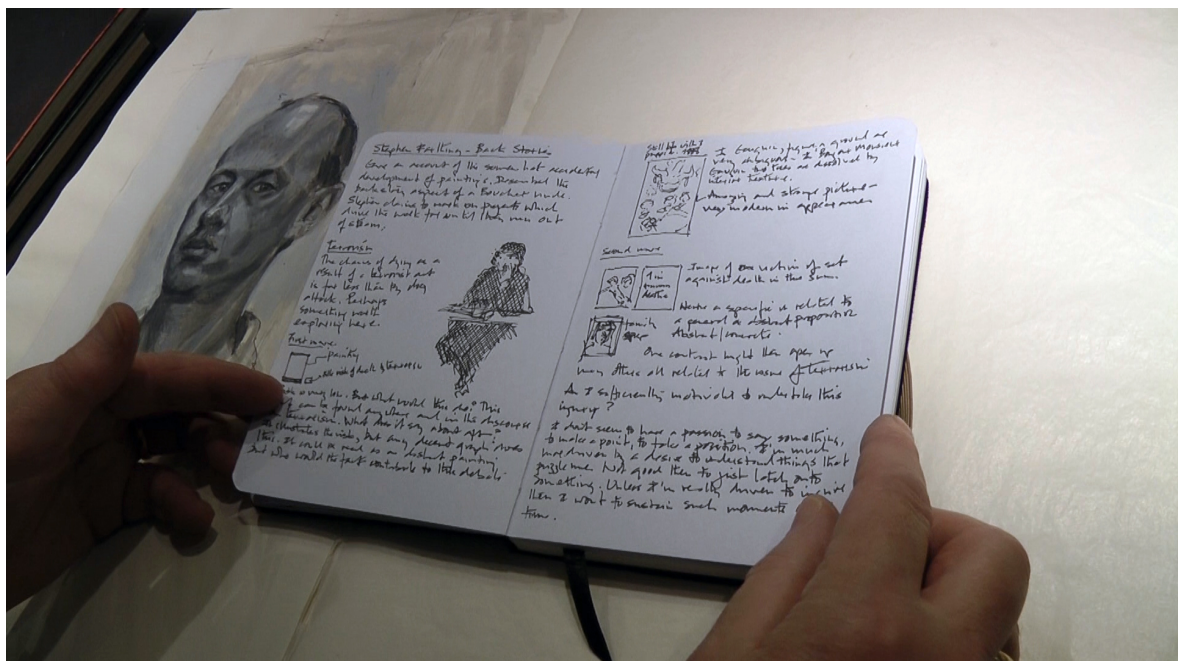 Stephen Farthing - Back Stories
Gave an account of the somewhat accidental
development of paintings. Described the
aspect of a Boucher nude.
Stephen to work on projects which
drive the work for until they run out
of steam.
Terrorism
The chances of dying as a
result of a terrorist act
is far less than by dog
attack. Perhaps
something worth
exploring here.
First move
painting
risk of death by terrorism
is very low. But what would this do? This
can be found anywhere and in the discourse
terrorism. What does it say about
illustrates the risk, but any decent graph does
this. It could be read as an abstract painting,
but who would the fact contribute to the debate.
Still life with
I Gauguin, figure & ground are
very ambiguous -
Gauguin
interior
Amazing and strange picture -
very modern in appearance
Second move
Image of one victim of set
against death in the sum.
1 in
deaths
Here a specific is related to
a general or abstract proposition
Abstract/concrete.
family
One contrast might then open up
many others all related to the issue of terrorism
Am I sufficiently motivated to undertake this
inquiry?
I don't seem to have a passion to say something,
to make a point, to take a position. I'm much
more driven by a desire to understand things that
puzzle me. Not good then to just latch onto
something. Unless I'm really driven to inquire
then I won't to sustain such moments
time.